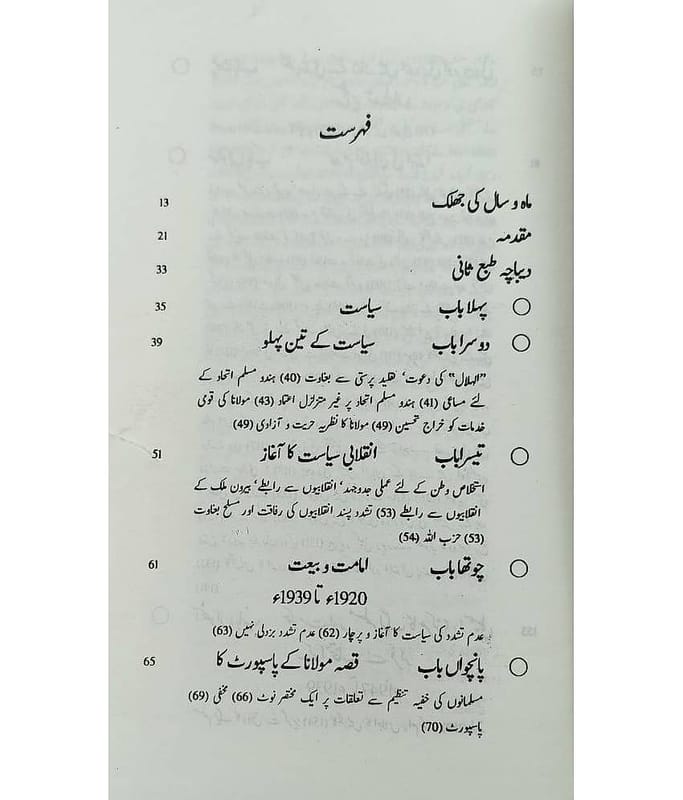 فہرست
ماہ و سال کی جھلک 13
مقدمہ 21
دیباچہ طبع ثانی 33
پہلا باب سیاست 35
دوسرا باب سیاست کے تین پہلو 39
”الہلال“ کی دعوت‘ تقلید پرستی سے بغاوت (40) ہندو مسلم اتحاد کے
لئے مساعی (41) ہندو مسلم اتحاد پر غیر متزلزل اعتماد (43) مولانا کی قومی
خدمات کو خراج تحسین (49) مولانا کا نظریہ حریت و آزادی (49)
تیسرا باب انقلابی سیاست کا آغاز 51
استخلاص وطن کے لئے عملی جدوجہد‘ انقلابیوں سے رابطے‘ بیرون ملک کے
انقلابیوں سے رابطے (53) تشدد پسند انقلابیوں کی رفاقت اور مسلح بغاوت
(53) حزب اللہ (54)
چوتھا باب امامت و بیعت 61
1920ء تا 1939ء
عدم تشدد کی سیاست کا آغاز و پرچار (62) عدم تشدد بزدلی نہیں (63)
پانچواں باب قصہ مولانا کے پاسپورٹ کا 65
مسلمانوں کی خفیہ تنظیم سے تعلقات پر ایک مختصر نوٹ (66) مخفی (69)
پاسپورٹ (70)